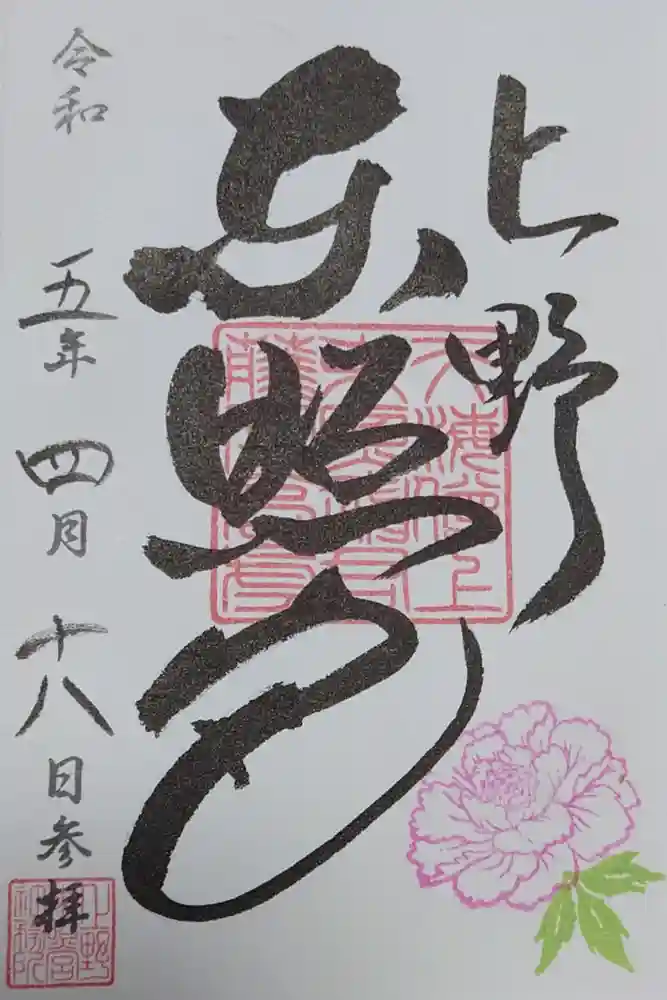 上野
東照宮
令和五年四月十八日参拝